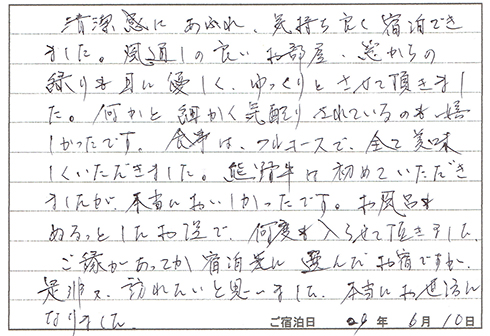 清潔感にあふれ、気持ち良く宿泊でき
ました。風通しの良いお部屋、窓からの
緑りも目に優しく、ゆっくりとさせて頂きまし
た。何かと細かく気配りされているのも嬉
しかったです。食事は、フルコースで、全て美味
しくいただきました。熊野牛は初めていただき
ましたが、本当においしかったです。お風呂も
ぬるっとしたお湯で、何度も入らせて頂きました
ご縁があってか宿泊先に選んだお宿ですが、
是非又、訪れたいと思いました。本当にお世話に
なりました。
ご宿泊日 29年 6月10日